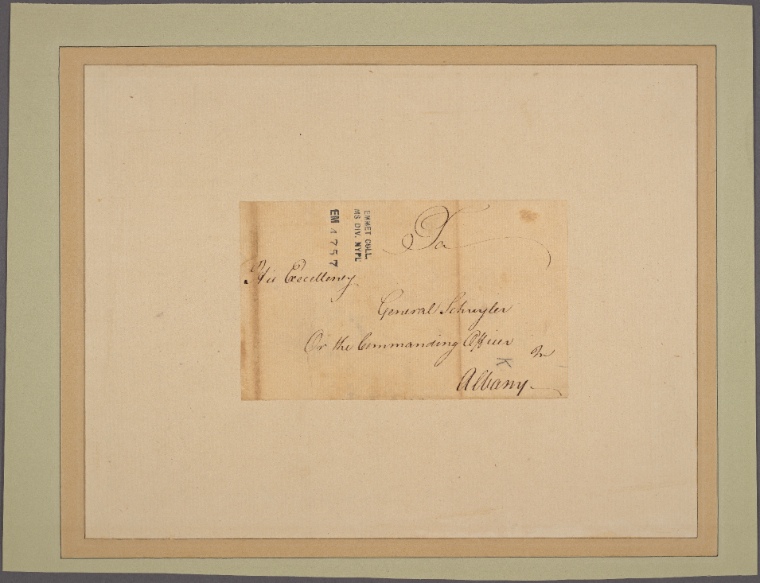 To
His Excellency
General Schuyler
Or the Commanding Officer In
Albany
EMMET COLL.
MS DIV. NYPL
EM 4757
K